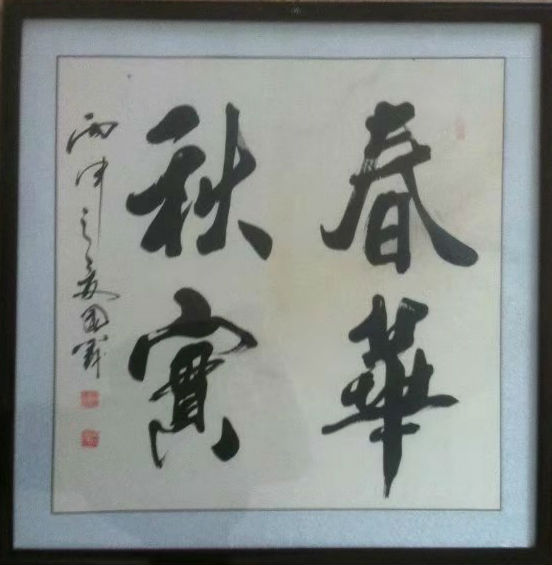 春華
秋實
丙申之夏國